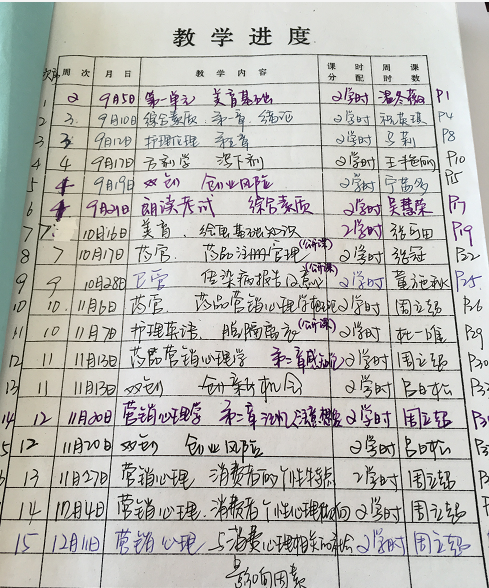 教学进度
次序 周次 月日 教学内容 课时分配 周课时数
1 2 9月5日 第一单元 美育基础 2学时 P1
2 3 9月10日 综合素质 第一章 绪论 2学时 P4
3 3 9月12日 护理伦理 第三章 2学时 马莉 P8
4 4 9月17日 方剂学 泻下剂 2学时 王艳丽 P10
5 4 9月19日 双创 创业风险 2学时 P15
6 4 9月21日 朗读考试 综合素质 2学时 吴慧荣 P17
7 10月16日 美育 绘画基础知识 2学时 P19
8 7 10月17日 药管 药品注册管理(公开课) 2学时 张冠 P22
9 9 10月28日 卫管 传染病报告(公开课) 2学时 P25
10 10 11月6日 药管 药品营销心理学 2学时 周立超 P26
11 10 11月7日 护理英语 (公开课) 2学时 杜一唯 P29
12 11 11月13日 药品营销心理学 第二章 2学时 周立超 P30
13 11 11月13日 双创 创新与机会 2学时 吕日松
14 12 11月20日 营销心理学 第二章 2学时 周立超
5 12 11月20日 双创 创业风险 2学时 吕日松
13 11月27日 营销心理 消费者的个性特点 2学时 周立超
14 12月4日 营销心理 消费者个性心理倾向 2学时 周立超
15 12月11日 营销心理 与消费心理相关的社会 2学时 周立超
影响因素